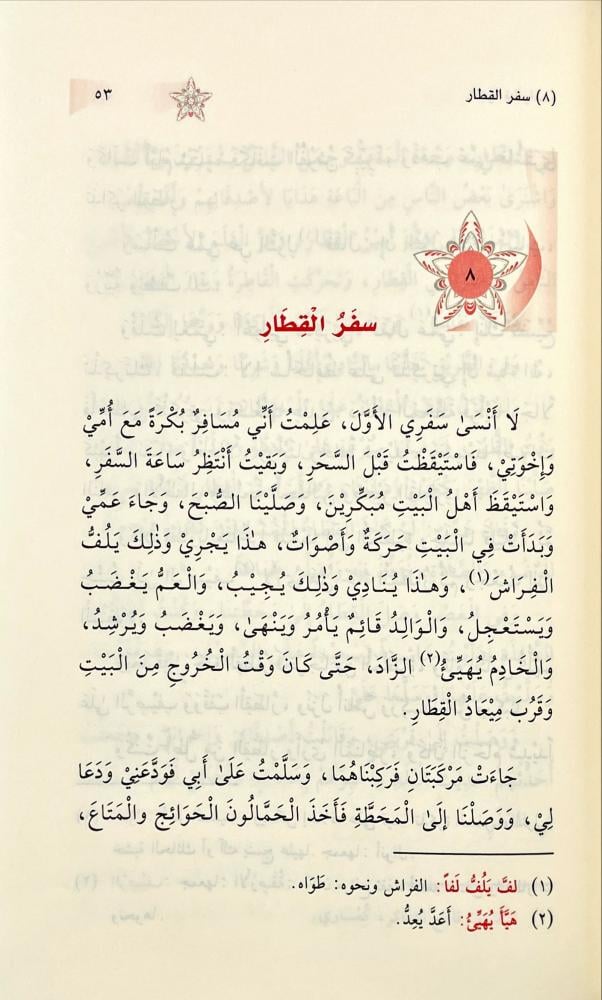 (٨) سفر القطار
٥٣
٨
سفَرُ الْقِطَارِ
لَا أَنْسَىٰ سَفَرِي الأَوَّلَ، عَلِمْتُ أَنِّي مُسَافِرٌ بُكْرَةً مَعَ أُمِّيْ
وَإِخْوَتِيْ، فَاسْتَيْقَظْتُ قَبْلَ السَّحَرِ، وَبَقِيْتُ أَنْتَظِرُ سَاعَةَ السَّفَرِ،
وَاسْتَيْقَظَ أَهْلُ الْبَيْتِ مُبَكِّرِيْنَ، وَصَلَّيْنَا الصُّبْحَ، وَجَاءَ عَمِّيْ
وَبَدَأَتْ فِي الْبَيْتِ حَرَكَةٌ وَأَصْوَاتٌ، هٰذَا يَجْرِيْ وَذٰلِكَ يَلُفُّ
الْفِرَاشَ(١)، وَهٰذَا يُنَادِيْ وَذٰلِكَ يُجِيْبُ، وَالْعَمُّ يَغْضَبُ
وَيَسْتَعْجِلُ، وَالْوَالِدُ قَائِمٌ يَأْمُرُ وَيَنْهَىٰ، وَيَغْضَبُ وَيُرْشِدُ،
وَالْخَادِمُ يُهَيِّئُ(٢) الزَّادَ، حَتَّى كَانَ وَقْتُ الْخُرُوجِ مِنَ الْبَيْتِ
وَقَرُبَ مِيْعَادُ الْقِطَارِ.
جَاءَتْ مَرْكَبَتَانِ فَرَكِبْنَاهُمَا، وَسَلَّمْتُ عَلَىٰ أَبِي فَوَدَّعَنِيْ وَدَعَا
لِيْ، وَوَصَلْنَا إلَى الْمَحَطَّةِ فَأَخَذَ الْحَمَالُونَ الْحَوَائِجَ وَالْمَتَاعَ،
(١) لفَّ يَلُفُّ لَفاً: الفراش ونحوه: طَوَاه.
(٢) هَيَّأَ يُهَيِّئُ: أَعَدَّ يُعِدُّ.